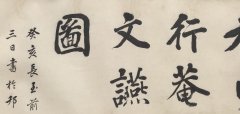 行菴
文讌
圖
癸亥長至前
三日書於邗